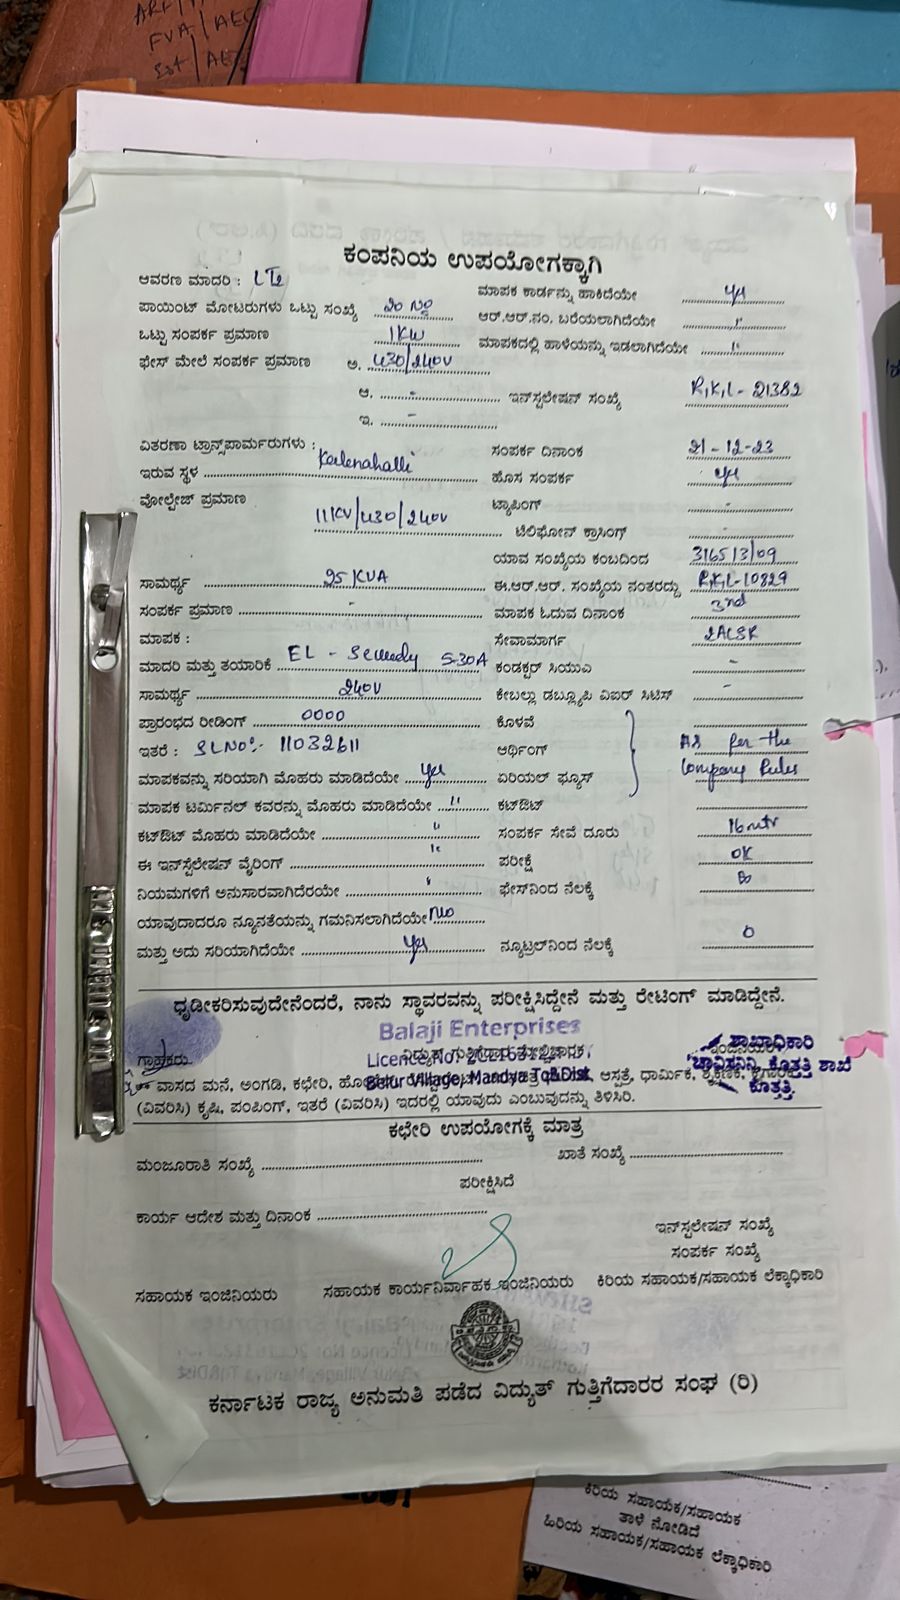 ಕಂಪನಿಯ ಉಪಯೋಗಕ್ಕಾಗಿ
ಆವರಣ ಮಾದರಿ : LT2 ಮಾಪಕ ಕಾರ್ಡನ್ನು ಹಾಕಿದೆಯೇ yes
ಪಾಯಿಂಟ್ ಮೋಟರುಗಳು ಒಟ್ಟು ಸಂಖ್ಯೆ 20 No ಆರ್.ಆರ್.ನಂ. ಬರೆಯಲಾಗಿದೆಯೇ "
ಒಟ್ಟು ಸಂಪರ್ಕ ಪ್ರಮಾಣ 1KW ಮಾಪಕದಲ್ಲಿ ಹಾಳೆಯನ್ನು ಇಡಲಾಗಿದೆಯೇ "
ಫೇಸ್ ಮೇಲೆ ಸಂಪರ್ಕ ಪ್ರಮಾಣ ಅ. 430/240V
ಆ. - ಇನ್‌ಸ್ಟಲೇಷನ್ ಸಂಖ್ಯೆ R.K.L - 21382
ಇ. -
ವಿತರಣಾ ಟ್ರಾನ್ಸ್‌ಪಾರ್ಮರುಗಳು : ಸಂಪರ್ಕ ದಿನಾಂಕ 21-12-23
ಇರುವ ಸ್ಥಳ Keelenahalli ಹೊಸ ಸಂಪರ್ಕ yes
ವೋಲ್ಟೇಜ್ ಪ್ರಮಾಣ ಟ್ಯಾಪಿಂಗ್ -
11KV/430/240V ಟೆಲಿಫೋನ್ ಕ್ರಾಸಿಂಗ್ -
ಯಾವ ಸಂಖ್ಯೆಯ ಕಂಬದಿಂದ 3165/3/09
ಸಾಮರ್ಥ್ಯ 25 KVA ಈ.ಆರ್.ಆರ್. ಸಂಖ್ಯೆಯ ನಂತರದ್ದು R.K.L-10829
ಸಂಪರ್ಕ ಪ್ರಮಾಣ - ಮಾಪಕ ಓದುವ ದಿನಾಂಕ 3rd
ಮಾಪಕ : ಸೇವಾಮಾರ್ಗ 2ACSR
ಮಾದರಿ ಮತ್ತು ತಯಾರಿಕೆ EL - 5-30A ಕಂಡಕ್ಟರ್ ಸಿಯುಎ -
ಸಾಮರ್ಥ್ಯ 240V ಕೇಬಲ್ಲು ಡಬ್ಲ್ಯೂಪಿ ವಿಐಆರ್ ಸಿಟಿಸ್ -
ಪ್ರಾರಂಭದ ರೀಡಿಂಗ್ 0000 ಕೊಳವೆ
ಇತರೆ : SL No:- 11032611 ಆರ್ಥಿಂಗ್ As per the
ಮಾಪಕವನ್ನು ಸರಿಯಾಗಿ ಮೊಹರು ಮಾಡಿದೆಯೇ yes ಏರಿಯಲ್ ಫ್ಯೂಸ್ Company Rules
ಮಾಪಕ ಟರ್ಮಿನಲ್ ಕವರನ್ನು ಮೊಹರು ಮಾಡಿದೆಯೇ " ಕಟ್‌ಔಟ್
ಕಟ್‌ಔಟ್ ಮೊಹರು ಮಾಡಿದೆಯೇ " ಸಂಪರ್ಕ ಸೇವೆ ದೂರು 16 mtr
ಈ ಇನ್‌ಸ್ಟಲೇಷನ್ ವೈರಿಂಗ್ " ಪರೀಕ್ಷೆ OK
ನಿಯಮಗಳಿಗೆ ಅನುಸಾರವಾಗಿದೆರಯೇ " ಫೇಸ್‌ನಿಂದ ನೆಲಕ್ಕೆ
ಯಾವುದಾದರೂ ನ್ಯೂನತೆಯನ್ನು ಗಮನಿಸಲಾಗಿದೆಯೇ No
ಮತ್ತು ಅದು ಸರಿಯಾಗಿದೆಯೇ yes ನ್ಯೂಟ್ರಲ್‌ನಿಂದ ನೆಲಕ್ಕೆ 0
ಧೃಡೀಕರಿಸುವುದೇನೆಂದರೆ, ನಾನು ಸ್ಥಾವರವನ್ನು ಪರೀಕ್ಷಿಸಿದ್ದೇನೆ ಮತ್ತು ರೇಟಿಂಗ್ ಮಾಡಿದ್ದೇನೆ.
Balaji Enterprises
ಗ್ರಾಹಕರು Licence No: ಶಾಖಾಧಿಕಾರಿ
Belur Village, Mandya Tq&Dist
ಚಾವಿಸನಿನಿ, ಕೊತ್ತತ್ತಿ ಶಾಖೆ
ಕೊತ್ತತ್ತಿ.
ವಾಸದ ಮನೆ, ಅಂಗಡಿ, ಕಛೇರಿ, ಆಸ್ಪತ್ರೆ, ಧಾರ್ಮಿಕ,
(ವಿವರಿಸಿ) ಕೃಷಿ, ಪಂಪಿಂಗ್, ಇತರೆ (ವಿವರಿಸಿ) ಇದರಲ್ಲಿ ಯಾವುದು ಎಂಬುವುದನ್ನು ತಿಳಿಸಿರಿ.
ಕಛೇರಿ ಉಪಯೋಗಕ್ಕೆ ಮಾತ್ರ
ಮಂಜೂರಾತಿ ಸಂಖ್ಯೆ ಖಾತೆ ಸಂಖ್ಯೆ
ಪರೀಕ್ಷಿಸಿದೆ
ಕಾರ್ಯ ಆದೇಶ ಮತ್ತು ದಿನಾಂಕ
ಇನ್‌ಸ್ಟಲೇಷನ್ ಸಂಖ್ಯೆ
ಸಂಪರ್ಕ ಸಂಖ್ಯೆ
ಸಹಾಯಕ ಇಂಜಿನಿಯರು ಸಹಾಯಕ ಕಾರ್ಯನಿರ್ವಾಹಕ ಇಂಜಿನಿಯರು ಕಿರಿಯ ಸಹಾಯಕ/ಸಹಾಯಕ ಲೆಕ್ಕಾಧಿಕಾರಿ
ಕರ್ನಾಟಕ ರಾಜ್ಯ ಅನುಮತಿ ಪಡೆದ ವಿದ್ಯುತ್ ಗುತ್ತಿಗೆದಾರರ ಸಂಘ (ರಿ)
ಕಿರಿಯ ಸಹಾಯಕ/ಸಹಾಯಕ
ತಾಳೆ ನೋಡಿದೆ
ಹಿರಿಯ ಸಹಾಯಕ/ಸಹಾಯಕ ಲೆಕ್ಕಾಧಿಕಾರಿ